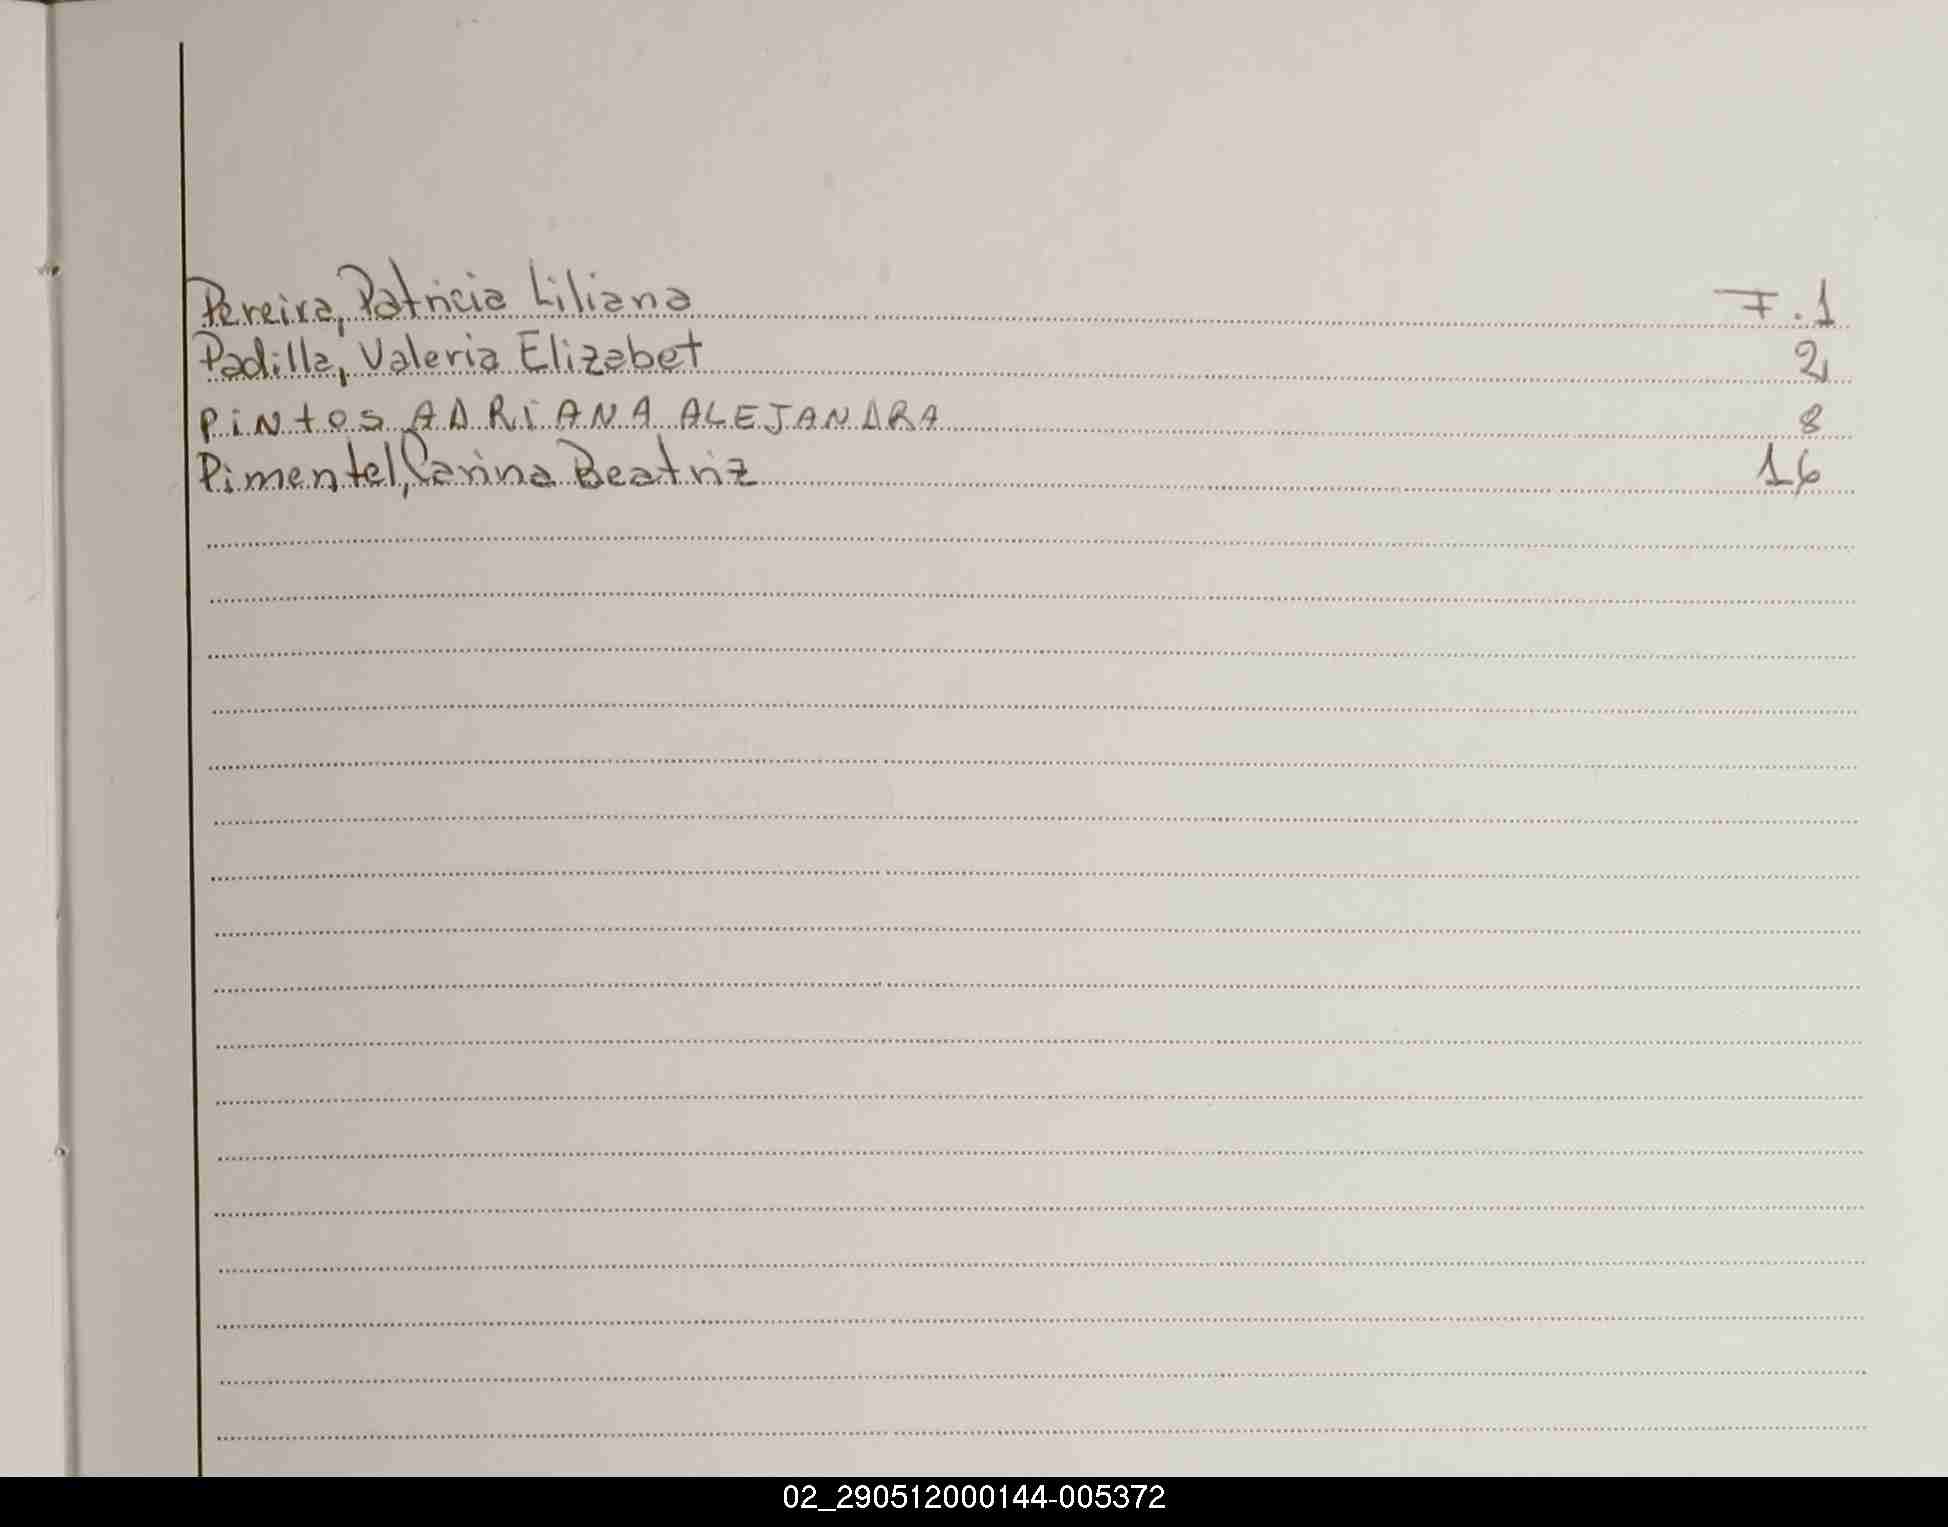 Pereira, Patricia Liliana F.1
Padilla, Valeria Elizabet 2
PiNtos ADRiANA ALEJANDRA 8
Pimentel, Carina Beatriz 16
02_290512000144-005372